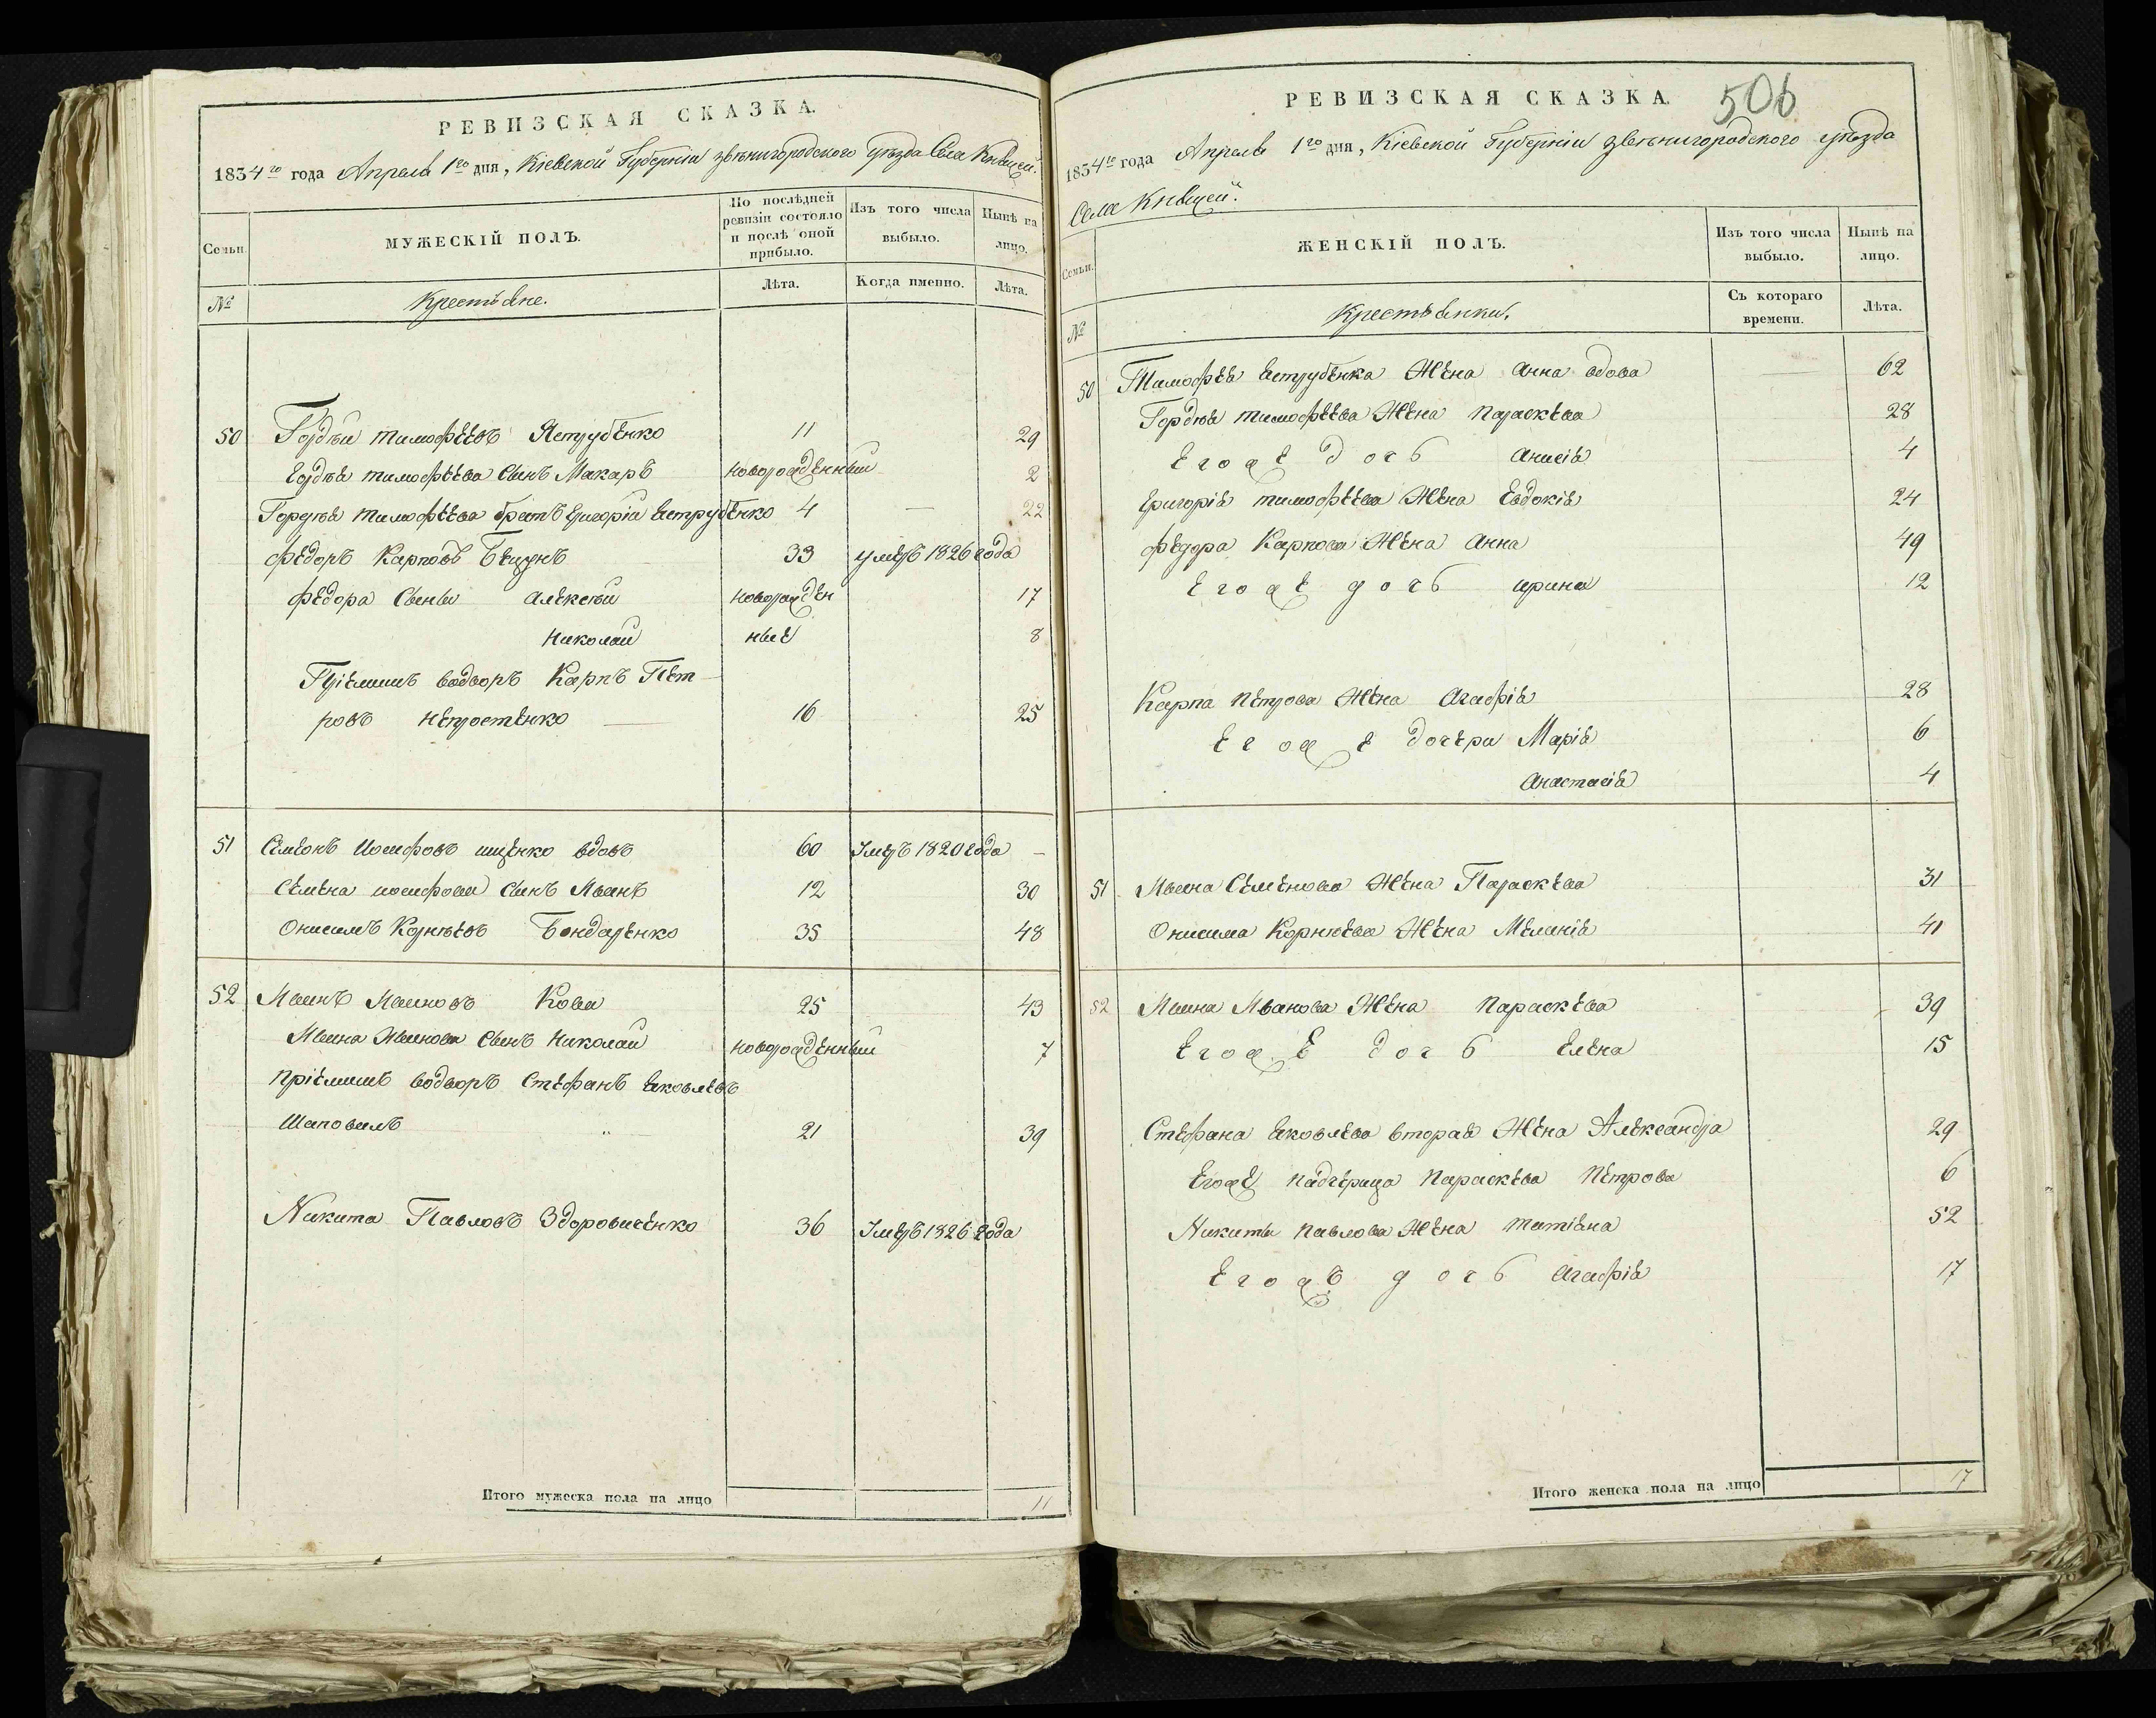 РЕВИЗСКАЯ СКАЗКА.
1834го года Апреля 1го дня, Кіевской Губерніи звенигородского уезда Села
Семьи. МУЖЕСКІЙ ПОЛЪ. По послѣдней ревизіи состояло и послѣ оной прибыло. Изъ того числа выбыло. Нынѣ на лицо.
№ Крестьяне. Лѣта. Когда именно. Лѣта.
50 Гордѣй тимофѣевъ Яструбенко 11 29
Гордѣя тимофѣева сынъ Макаръ новорожденный 2
Гордѣя тимофѣева братъ григорій яструбенко 4 — 22
федоръ Карповъ 33 умеръ 1826 года
федора сыны алексѣй новорожден 17
николай ные 8
Пріемышъ водворъ Карпъ Пет
ровъ 16 25
51 Семіонъ Иосифовъ ищенко вдовъ 60 Умеръ 1820 года —
Семена иосифова сынъ Иванъ 12 30
Онисимъ Корнѣевъ Бондаренко 35 48
52 Иванъ Ивановъ Кова 25 43
Ивана Иванова сынъ Николай новорожденный 7
Пріемышъ водворъ Стефанъ яковлевъ
Шаповалъ 21 39
Никита Павловъ Здоровиченко 36 Умеръ 1826 года
Итого мужеска пола на лицо 11
506
РЕВИЗСКАЯ СКАЗКА.
1834го года Апреля 1го дня, Кіевской Губерніи звенигородского уезда
Села
Семьи. ЖЕНСКІЙ ПОЛЪ. Изъ того числа выбыло. Нынѣ на лицо.
№ Крестьянки. Съ котораго времени. Лѣта.
50 Тимофея яструбенка жена анна вдова — 62
Гордѣя тимофѣева жена параскева 28
Егоже дочь анисія 4
григорія тимофѣева жена Евдокія 24
федора Карпова жена анна 49
Егоже дочь ирина 12
Карпа петрова жена агафія 28
Егоже дочери Марія 6
анастасія 4
51 Ивана Семенова жена Параскева 31
Онисима Корнѣева жена Меланія 41
52 Ивана Иванова жена параскева 39
Егоже дочь Елена 15
Стефана яковлева вторая жена Александра 29
Егоже падчерица параскева петрова 6
Никиты павлова жена татіяна 52
Егожъ дочь агафія 17
Итого женска пола на лицо 17